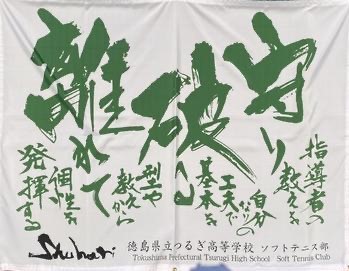 守り
指導者の
教えを
破る
自分
なりの
工夫で
基本を
離れて
型や
教えから
個性を
発揮する
Shuhari
徳島県立つるぎ高等学校 ソフトテニス部
Tokushima Prefectural Tsurugi High School Soft Tennis Club